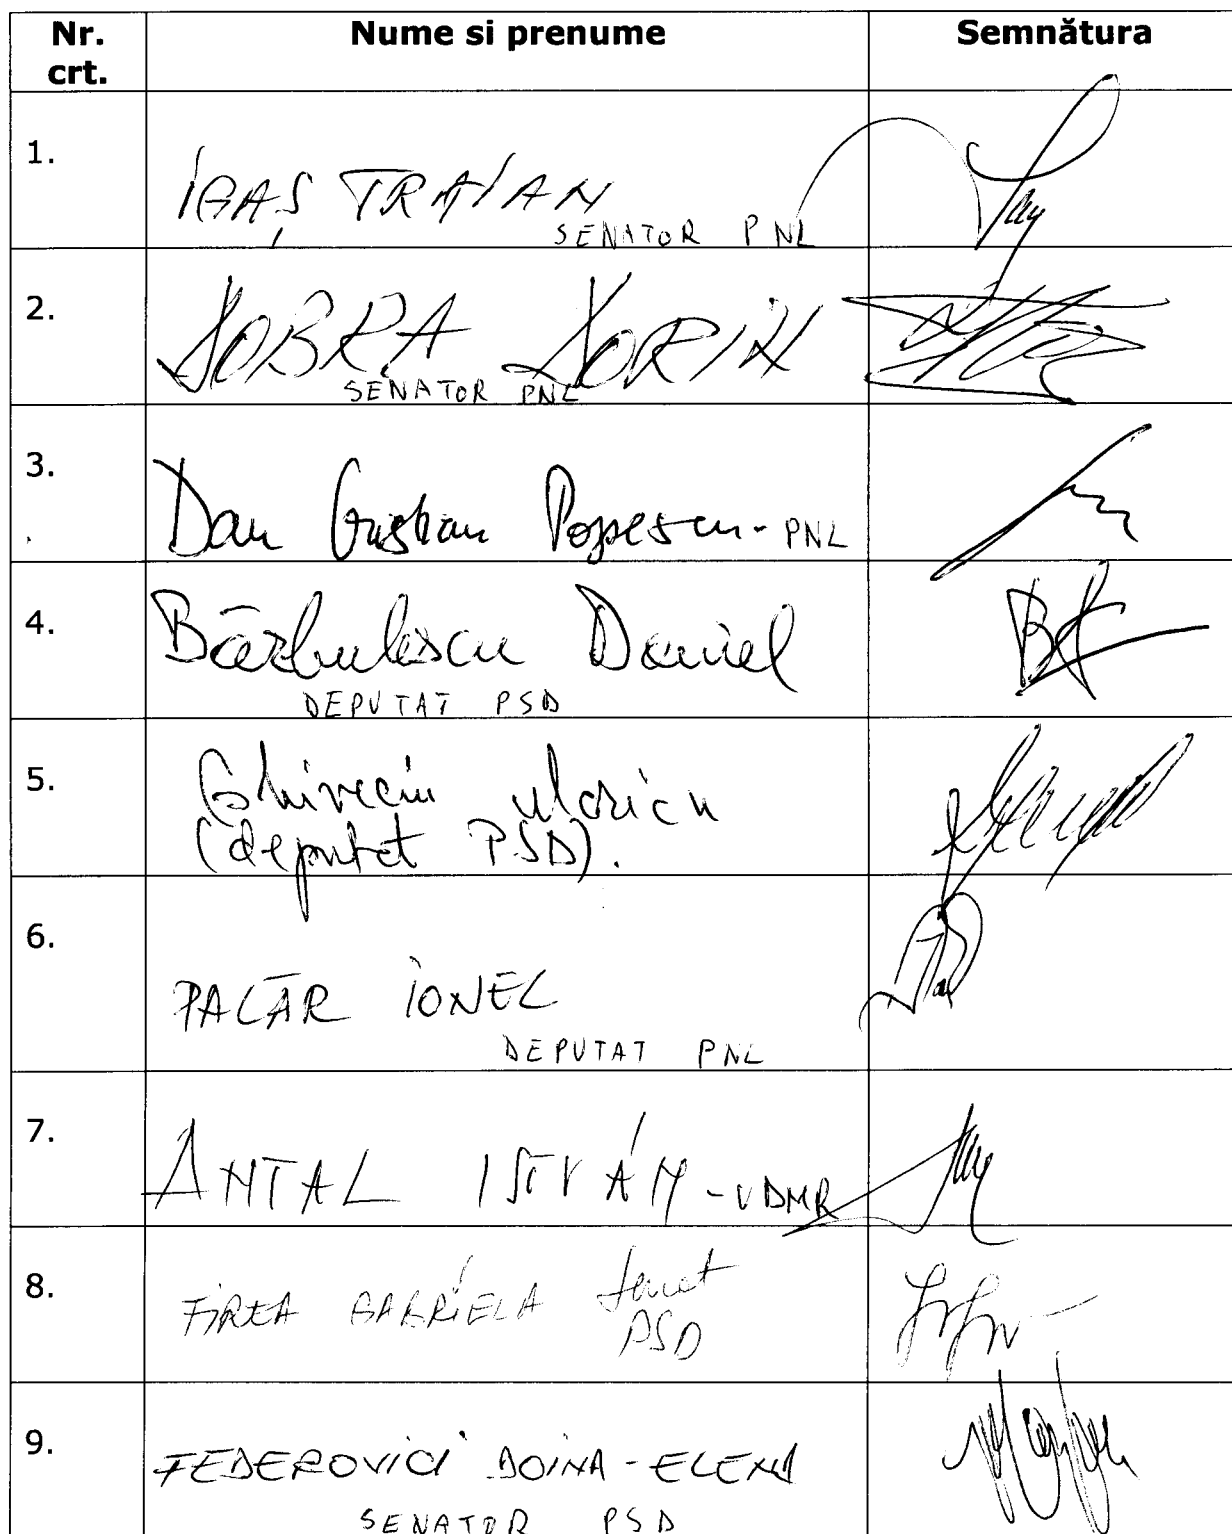 Nr. crt. Nume si prenume Semnătura
1. IGAȘ TRAIAN
SENATOR PNL
2. DOBRA DORIN
SENATOR PNL
3. Dan Cristian Popescu - PNL
4. Bărbulescu Daniel
DEPUTAT PSD
5. Ghiveciu Marian
(deputat PSD).
6. PALĂR IONEL
DEPUTAT PNL
7. ANTAL ISTVÁN - UDMR
8. FIREA GABRIELA Senat
PSD
9. FEDEROVICI DOINA-ELENA
SENATOR PSD